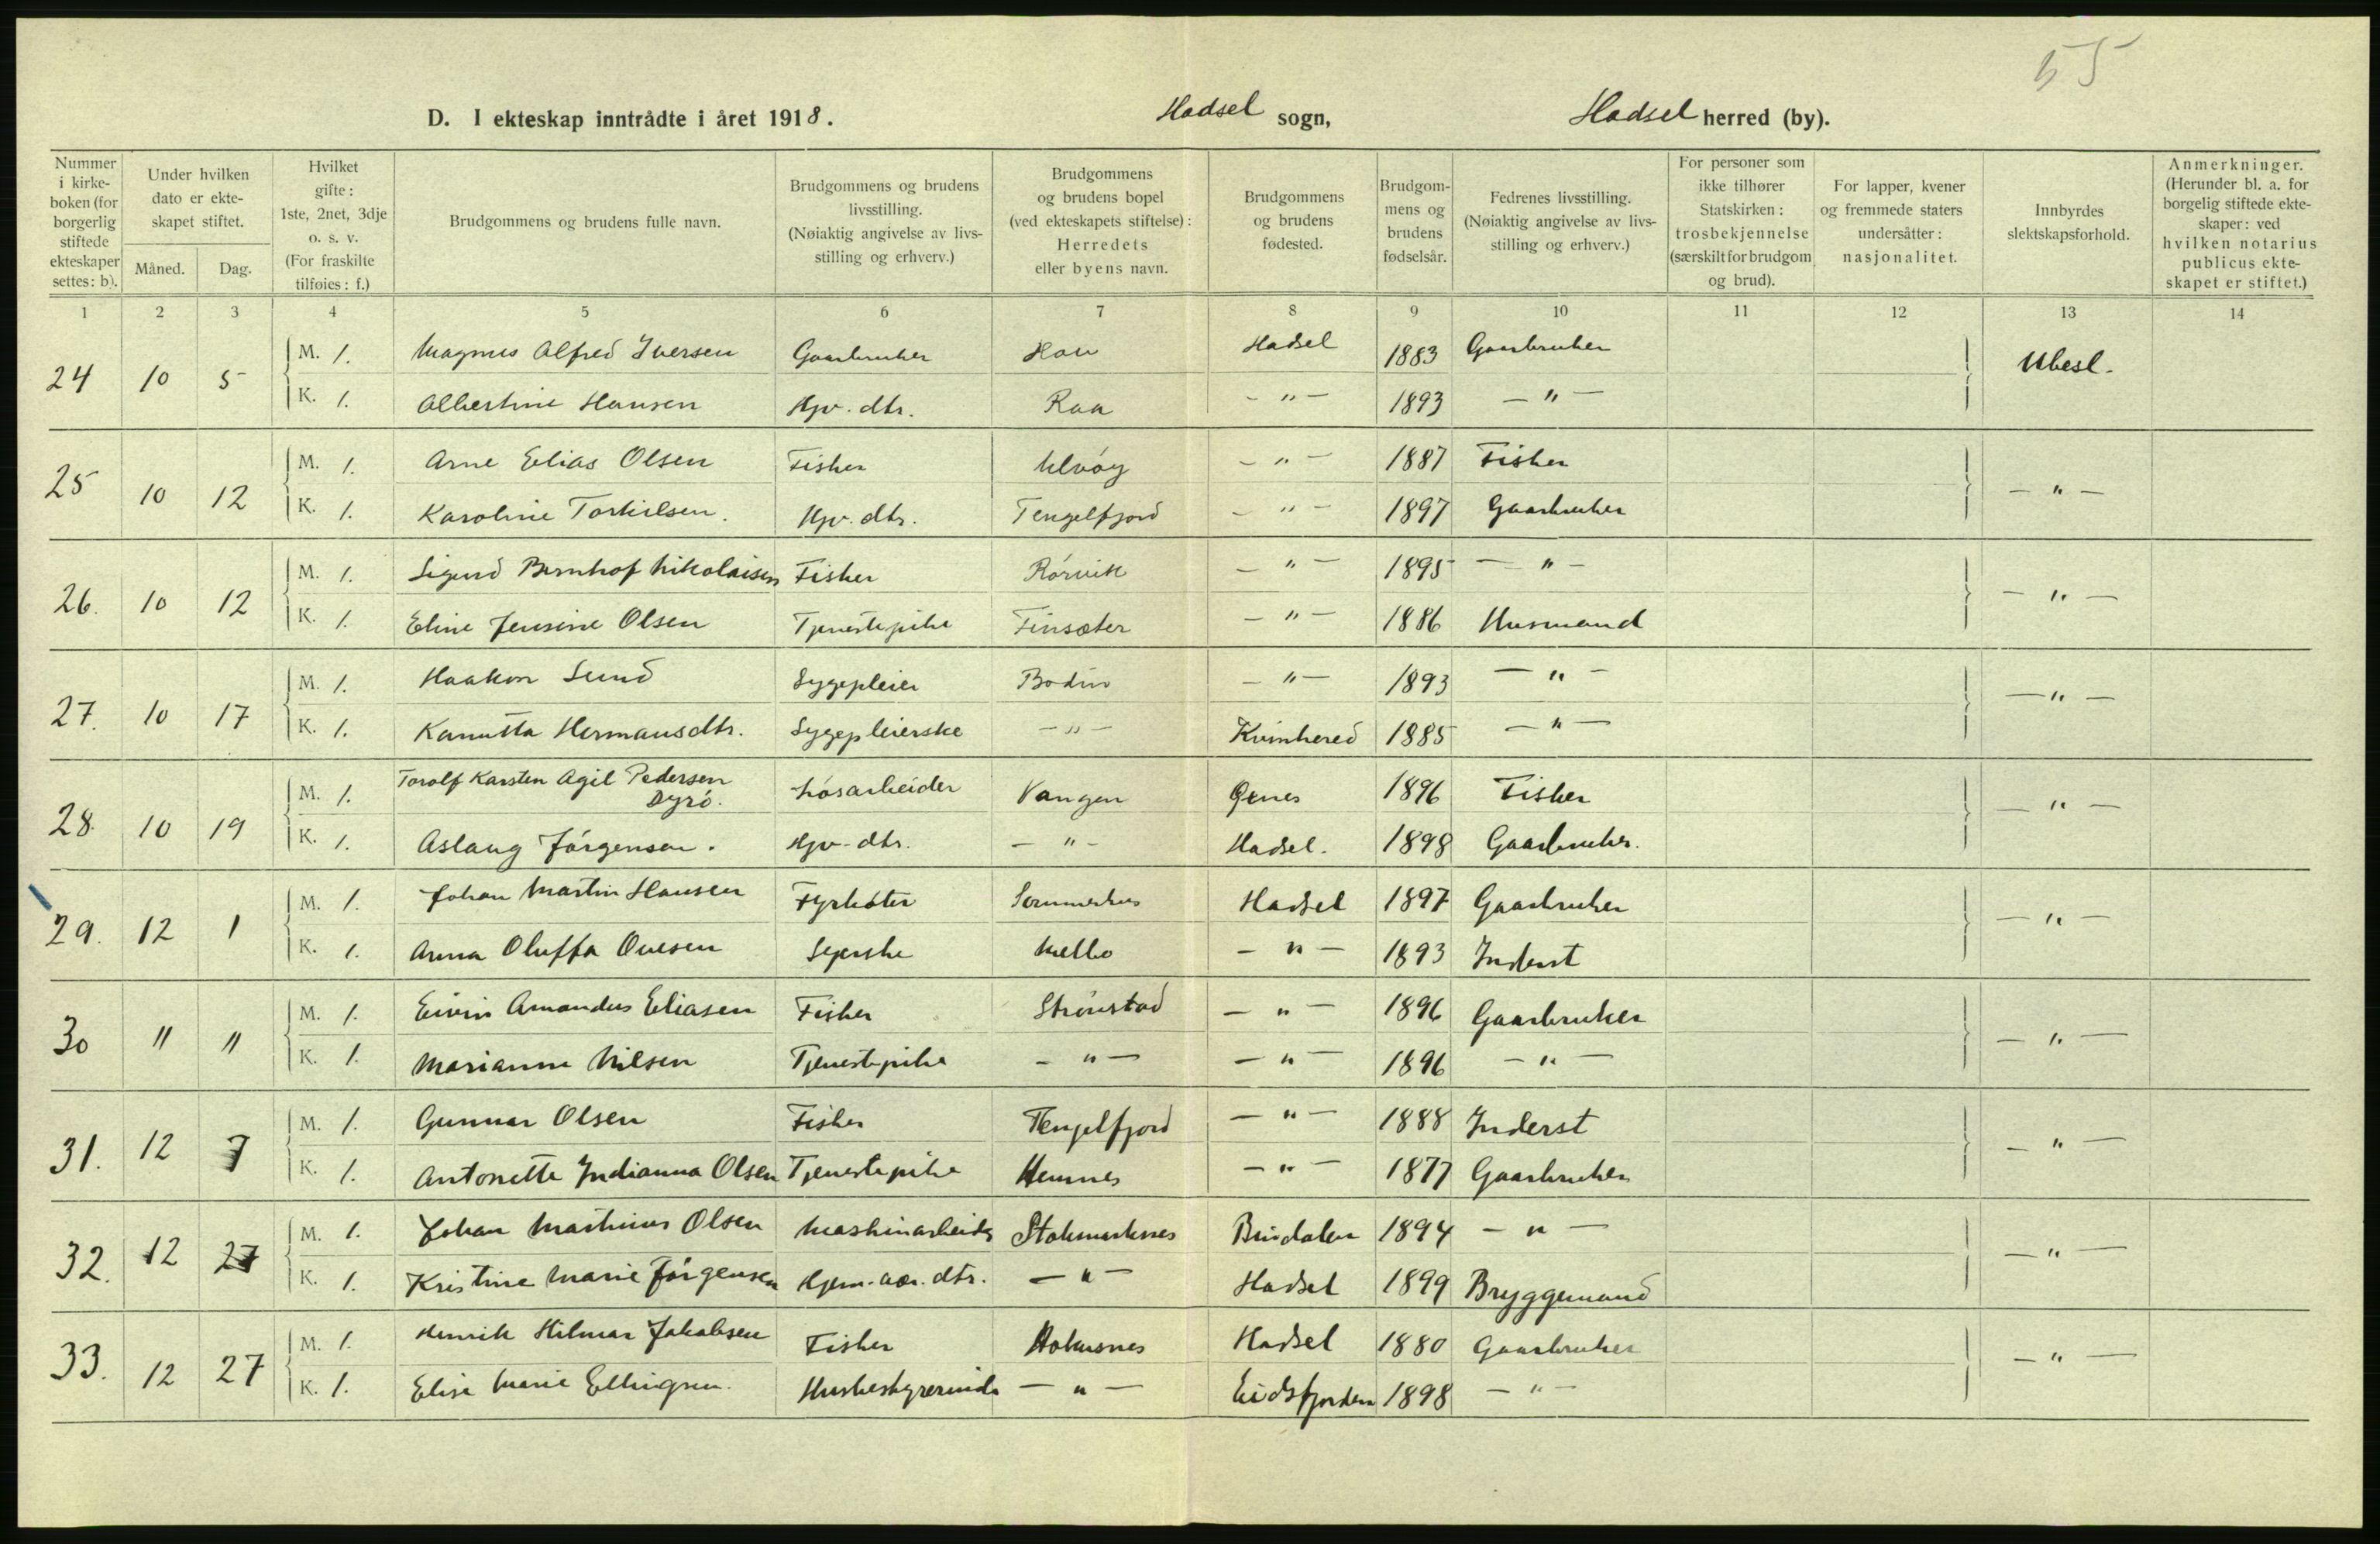 55
D. I ekteskap inntrådte i året 1918. Hadsel sogn, Hadsel herred (by).
Nummer i kirkeboken (for borgerlig stiftede ekteskaper settes: b). | Under hvilken dato er ekteskapet stiftet. Måned. Dag. | Hvilket gifte: 1ste, 2net, 3dje o. s. v. (For fraskilte tilføies: f.) | Brudgommens og brudens fulle navn. | Brudgommens og brudens livsstilling. (Nøiaktig angivelse av livsstilling og erhverv.) | Brudgommens og brudens bopel (ved ekteskapets stiftelse): Herredets eller byens navn. | Brudgommens og brudens fødested. | Brudgommens og brudens fødselsår. | Fedrenes livsstilling. (Nøiaktig angivelse av livsstilling og erhverv.) | For personer som ikke tilhører Statskirken: trosbekjennelse (særskilt for brudgom og brud). | For lapper, kvener og fremmede staters undersåtter: nasjonalitet. | Innbyrdes slektskapsforhold. | Anmerkninger. (Herunder bl. a. for borgelig stiftede ekteskaper: ved hvilken notarius publicus ekteskapet er stiftet.)
1 2 3 4 5 6 7 8 9 10 11 12 13 14
24 10 5 M. 1. Magnus Alfred Iversen Gaarbruker Hou Hadsel 1883 Gaarbruker Ubesl.
K. 1. Albertine Hansen Hjv. dtr. Raa - " - 1893 - " -
25 10 12 M. 1. Arne Elias Olsen Fisker Ulvøy - " - 1887 Fisker - " -
K. 1. Karoline Torkilsen. Hjv. dtr. Tengelfjord - " - 1897 Gaarbruker
26. 10 12 M. 1. Sigurd Bernhof Nikolaisen Fisker Rørvik - " - 1895 - " - - " -
K. 1. Eline Jensine Olsen Tjenestepike Finsæter - " - 1886 Husmand
27. 10 17 M. 1. Haakon Sund Sygepleier Bodin - " - 1893 - " - - " -
K. 1. Kanutta Hermansdtr. Sygepleierske - " - Kvinhered 1885 - " -
28. 10 19 M. 1. Torolf Karsten Agil Pedersen Dyrø. Løsarbeider Vangen 1896 Fisker - " -
K. 1. Aslaug Jørgensen. Hjv-dtr. - " - Hadsel. 1898 Gaarbruker.
29. 12 1 M. 1. Johan Martin Hansen Fyrbøter Sommerhus Hadsel 1897 Gaarbruker - " -
K. 1. Anna Oluffa Ovesen Syerske Melbo - " - 1893 Inderst
30 " " M. 1. Eivin Amandus Eliasen Fisker Strønstad - " - 1896 Gaarbruker - " -
K. 1. Marianne Nilsen Tjenestepike - " - - " - 1896 - " -
31. 12 7 M. 1. Gunnar Olsen Fisker Tengelfjord - " - 1888 Inderst - " -
K. 1. Antonette Indianna Olsen Tjenestepike Hemnes - " - 1877 Gaarbruker
32. 12 27 M. 1. Johan Martinus Olsen Maskinarbeider Stokmarknes Bindalen 1894 - " - - " -
K. 1. Kristine Marie Jørgensen Hjem. vær. dtr. - " - Hadsel 1899 Bryggemand
33. 12 27 M. 1. Henrik Hilmar Jakobsen Fisker Hokusnes Hadsel 1880 Gaarbruker - " -
K. 1. Elise Marie Ellingsen. Husbestyrerinde - " - Eidsfjorden 1898 - " -